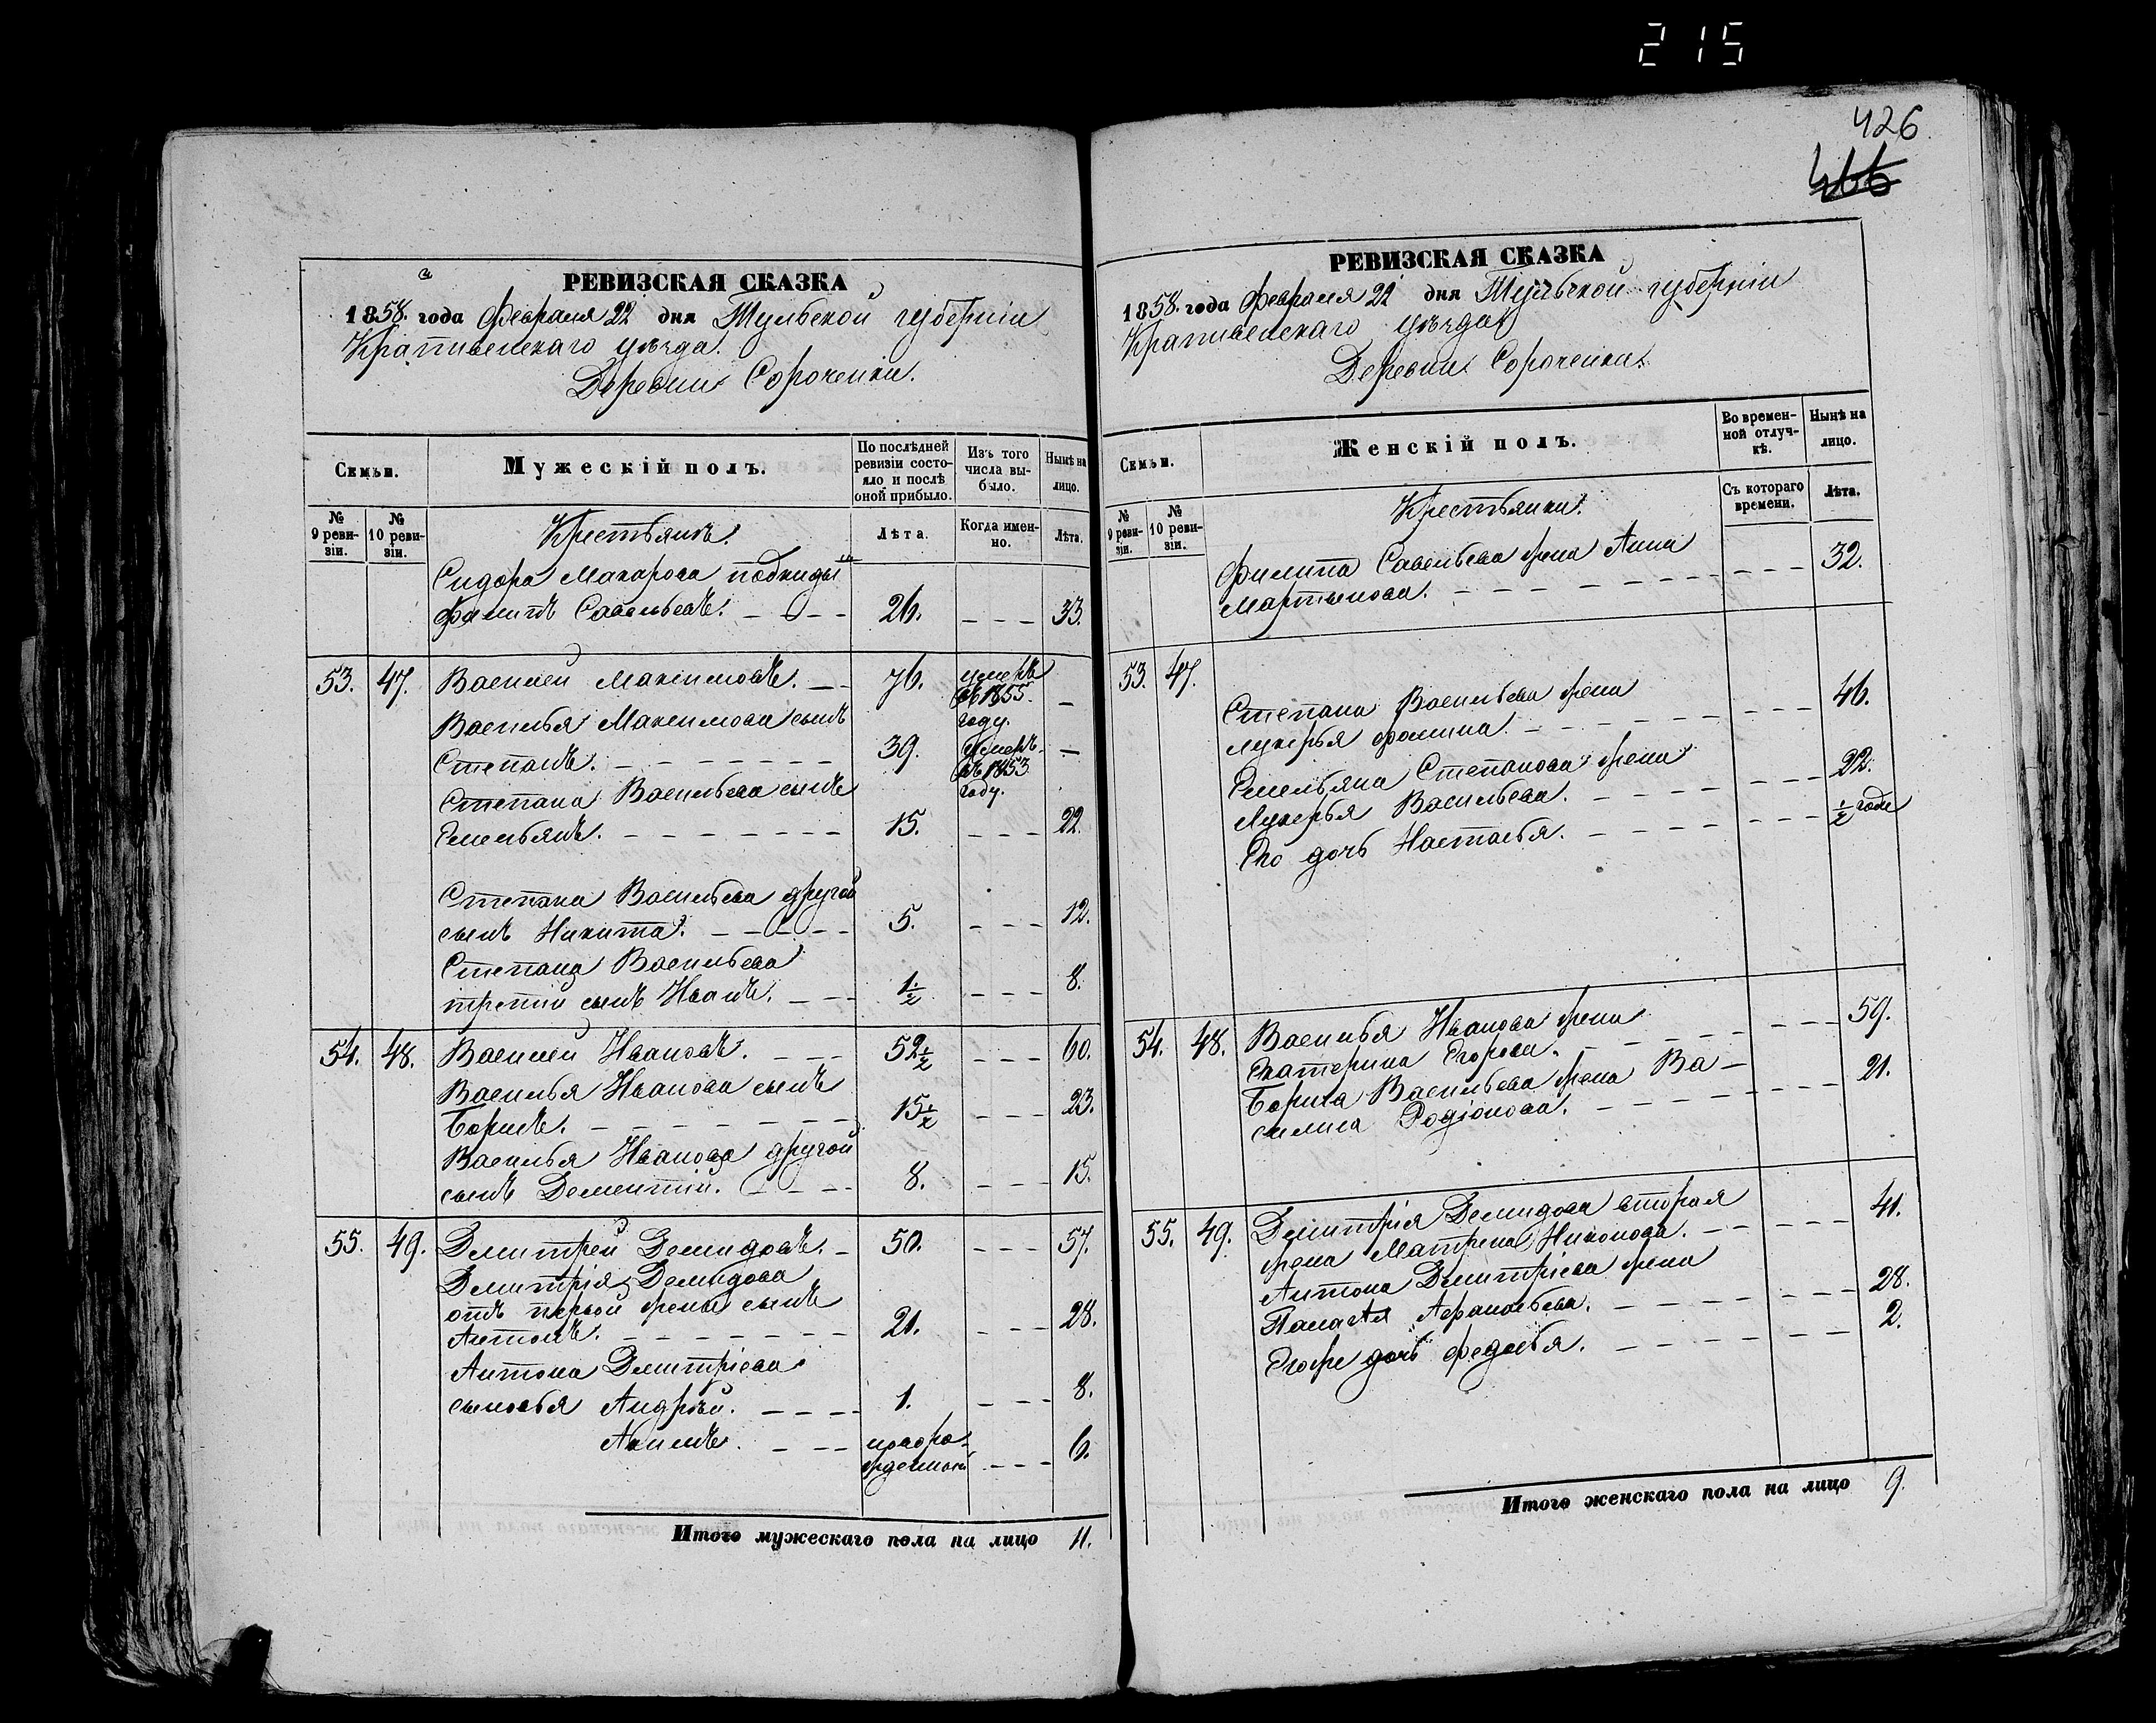 215
426
466
РЕВИЗСКАЯ СКАЗКА
1858. года Февраля 22 дня Тульской губерніи
Крапивенскаго уѣзда.
Деревни Сороченки.
Семьи.
Мужескій полъ.
По послѣдней ревизіи состояло и послѣ оной прибыло.
Изъ того числа выбыло.
Нынѣ на лицо.
№ 9 ревизіи.
№ 10 ревизіи.
Крестьянъ.
Лѣта.
Когда именно.
Лѣта.
Сидора Макарова подкидыш
Филипъ Савельевъ. 26. 33.
53. 47. Василей Максимовъ. 76. умеръ въ 1855 году.
Василья Максимова сынъ
Степанъ. 39. умеръ въ 1853 году.
Степана Васильева сынъ
Емельянъ. 15. 22.
Степана Васильева другой
сынъ Никита. 5. 12.
Степана Васильева
третій сынъ Иванъ. 1/2 8.
54. 48. Василей Ивановъ. 52 1/2 60.
Василья Иванова сынъ
Борисъ. 15 1/2 23.
Василья Иванова другой
сынъ Дементій. 8. 15.
55. 49. Дмитрей Демидовъ. 50. 57.
Дмитрія Демидова
отъ первой жены сынъ
Антонъ. 21. 28.
Антона Дмитріева
сыновья Андрей. 1. 8.
Акимъ. новорожденный 6.
Итого мужескаго пола на лицо 11.
РЕВИЗСКАЯ СКАЗКА
1858. года Февраля 22 дня Тульской губерніи
Крапивенскаго уѣзда
Деревни Сороченки.
Семьи.
Женскій полъ.
Во временной отлучкѣ.
Нынѣ на лицо.
№ 9 ревизіи.
№ 10 ревизіи.
Крестьянки.
Съ котораго времени.
Лѣта.
Филипа Савельева жена Анна
Мартынова. 32.
53. 47.
Степана Васильева жена
Лукерья Фомина. 46.
Емельяна Степанова жена
Лукерья Васильева. 22.
Его дочь Настасья. 1/2 года
54. 48. Василья Иванова жена
Екатерина Егорова. 59.
Бориса Васильева жена Ва-
силиса Родіонова. 21.
55. 49. Дмитрія Демидова вторая
жена Матрена Никонова. 41.
Антона Дмитріева жена
Палагѣя Афанасьева. 28.
Егоже дочь Федосья. 2.
Итого женскаго пола на лицо 9.